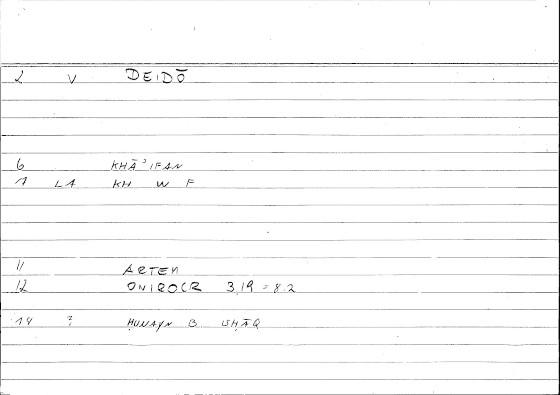 2 V DEIDŌ
6 KHĀʾIFAN
1 LA KH W F
11 ARTEM
12 ONIROCR 3,19 = 8.2
14 ? ḤUNAYN B ISḤĀQ